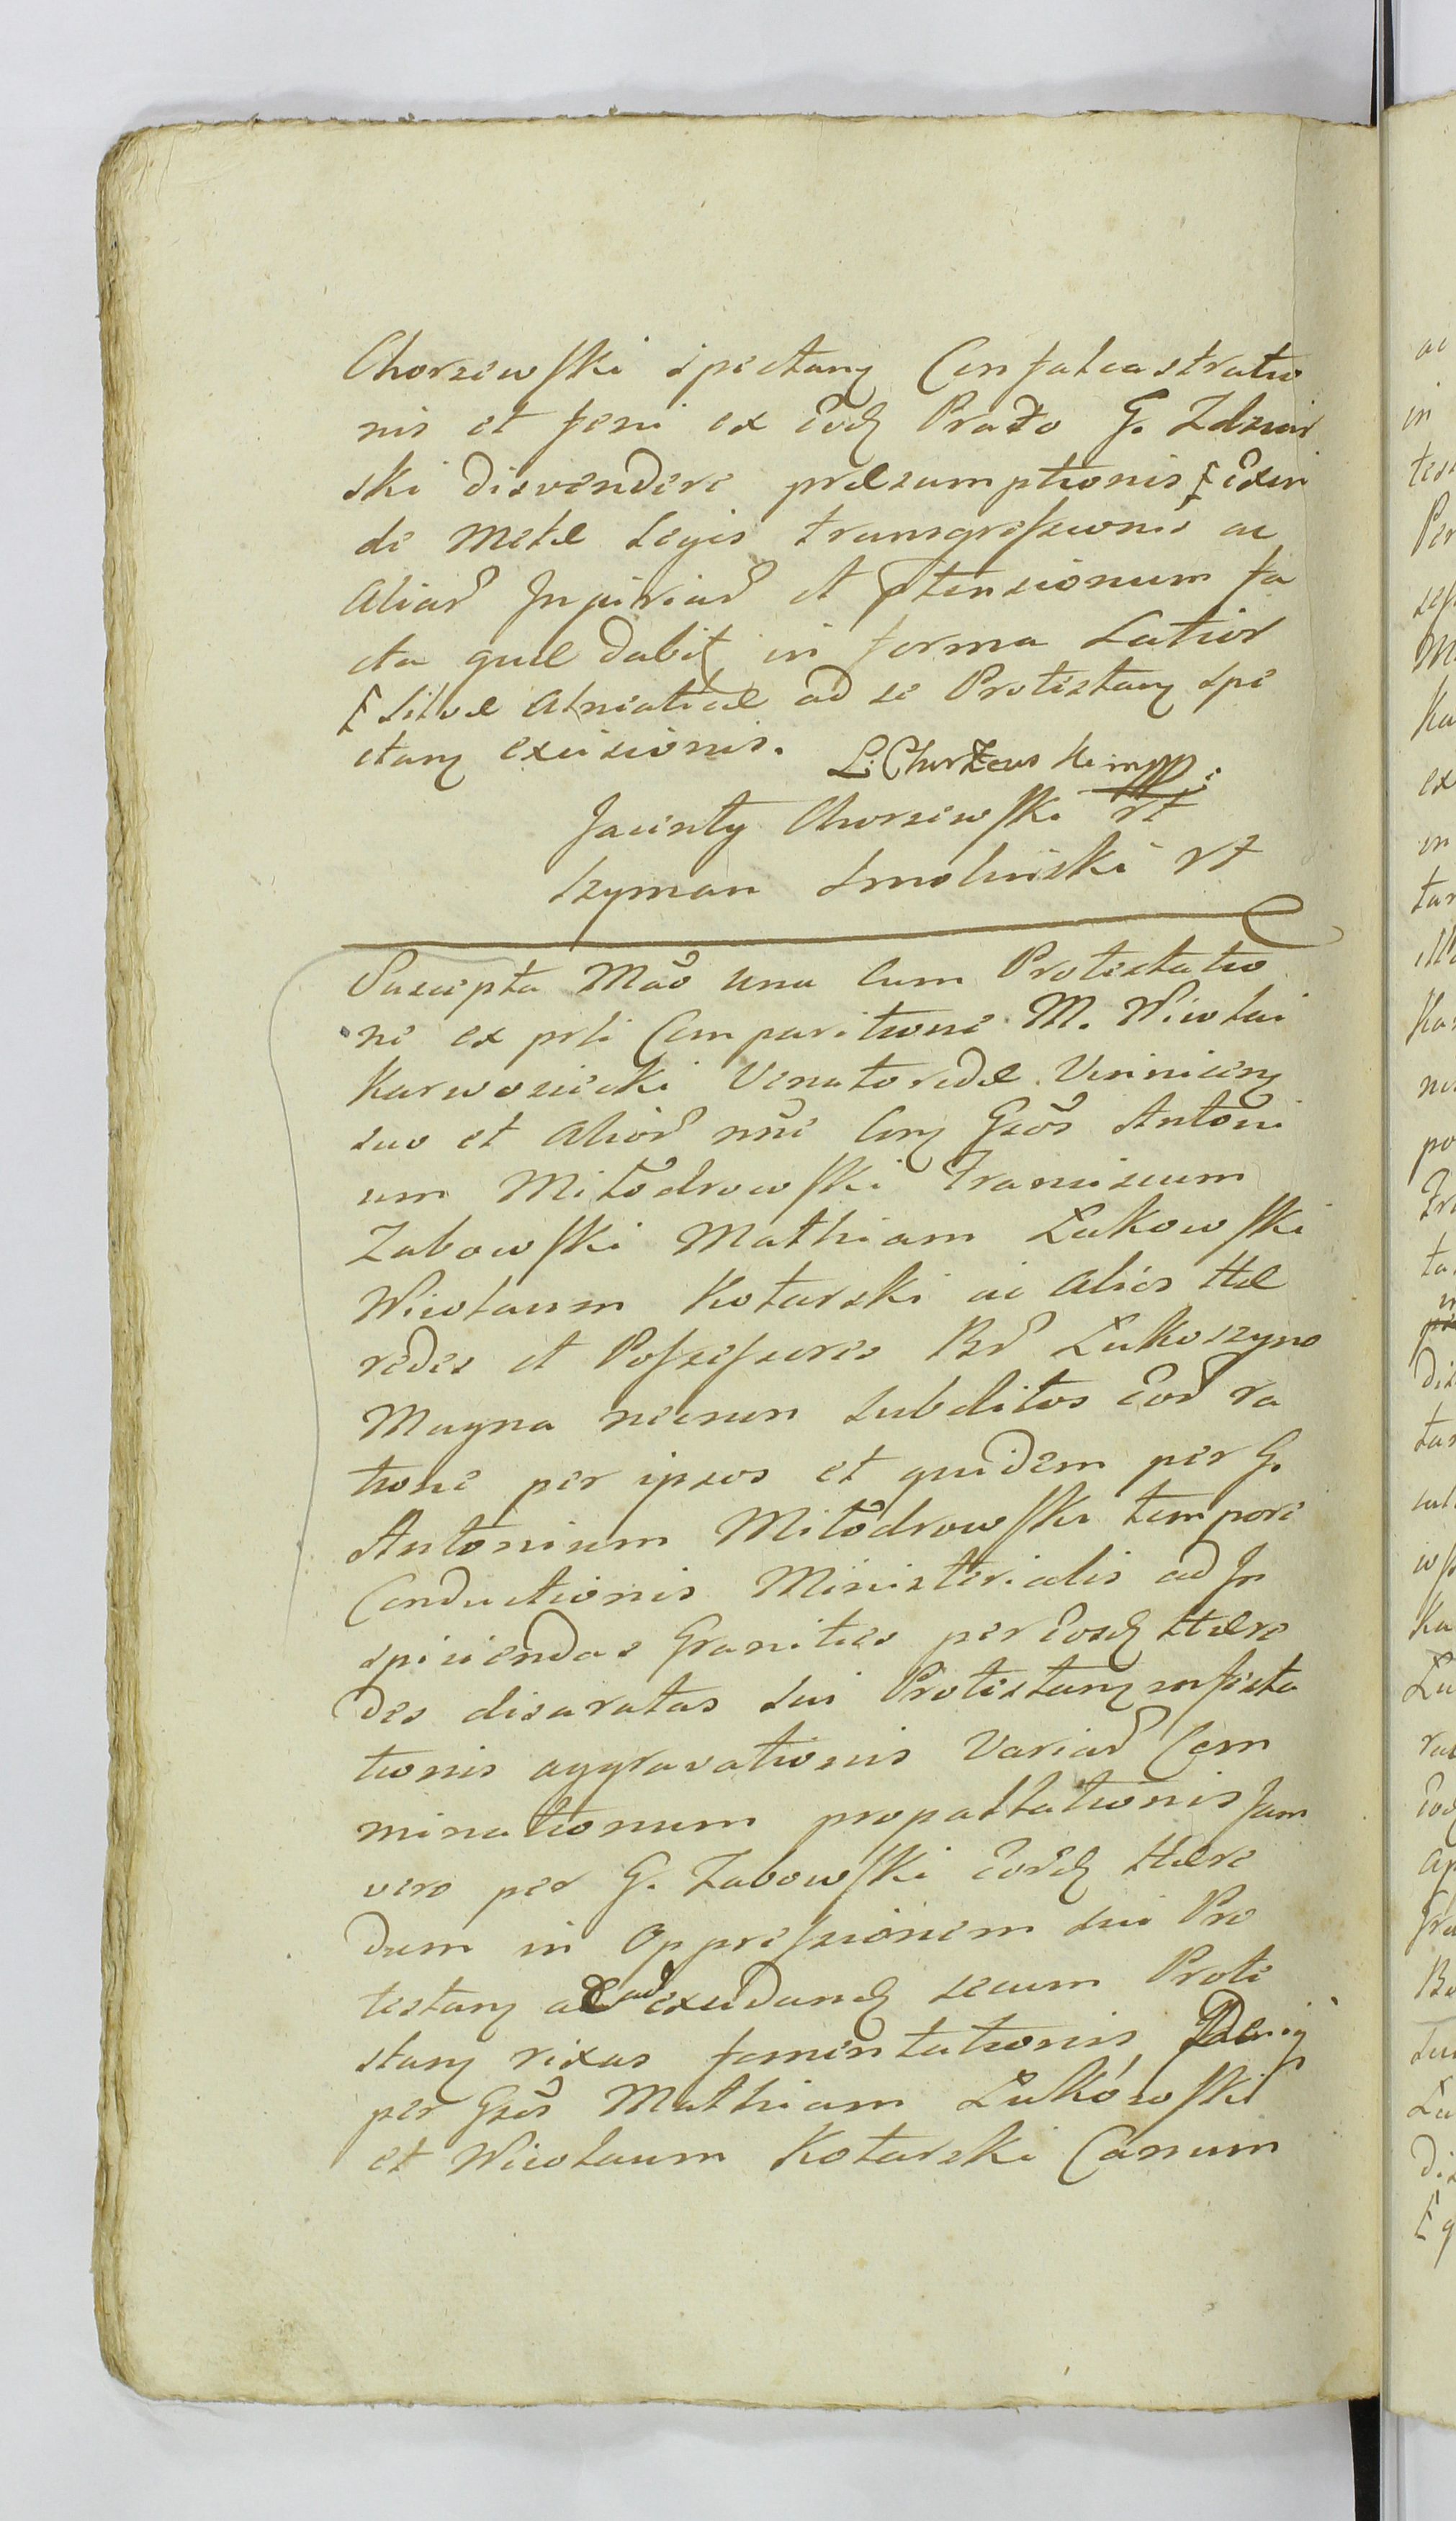 Chorzewski spectang Confalcastratio
nis et feni ex eodq Prato G. Zdziar
ski disvendere praesumptionis exin
de metae Legis transgressionis ac
aliar Injuriar et ptensionum fa
cta quae dabit in forma Latior
Silvae Alneaticae ad se Protestang spe
ctang excisionis.
L: Chorzewski mpp.
Jacinty Chorzewski rt
Szyman Smolinski rt
Suscepta Mao una cum Protestatio
ne ex prti Comparitione M. Nicolai
Karwosiecki Venatoridae Vinniceng
suo et alior nne Cong Gsos Antoni
um Mitodrowski Franciscum
Zabowski Mathiam Łukowski
Nicolaum Kotarski ac alios Hae
redes et Possessores Br Łukoszyno
Magna necnon subditos Eor ra
tione per ipsos et quidem per G.
Antonium Mitodrowski tempore
Conductionis Ministerialis ad In
spiciendas Granities per Eosdq Haere
des disaratas sui Protestang infesta
tionis aggravationis Variar Com
minationum propallationis Jam
vero per G. Zabowski Eordq Haere
dum in Oppressionem sui Pro
testang ac ad excudandq secum Prote
stang rixas fomentationis Deniq
per Gsos Mathiam Łukowski
et Nicolaum Kotarski Canum